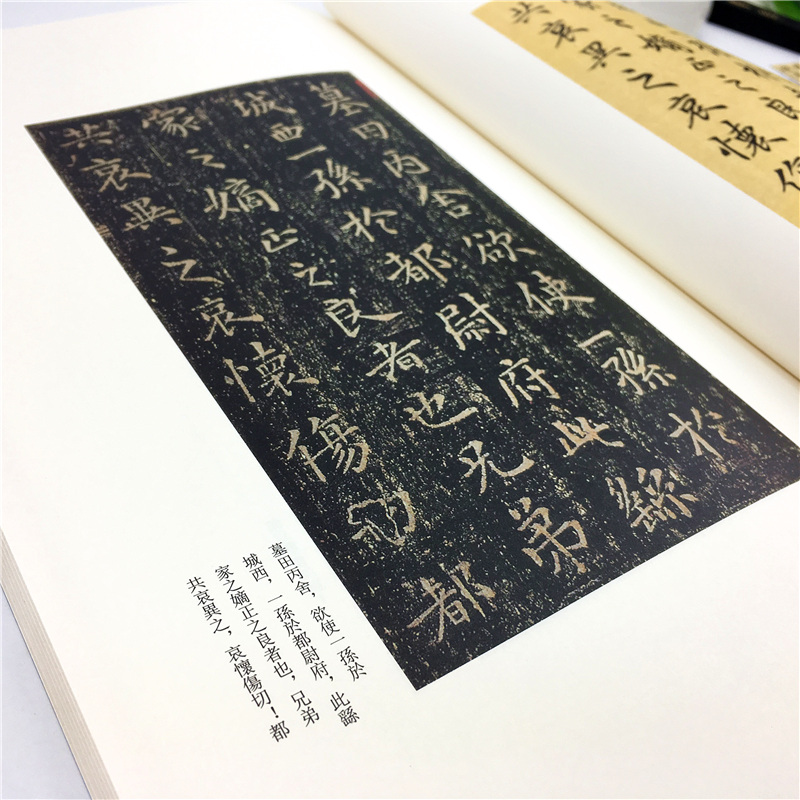 墓田丙舍欲使一孫於
城西一孫於都尉府此繇
家之嫡正之良者也兄弟
共哀異之哀懷傷切都
墓田丙舍，欲使一孫於
城西，一孫於都尉府，此繇
家之嫡正之良者也，兄弟
共哀異之，哀懷傷切！都
家之嫡正之良
共哀異之哀懷